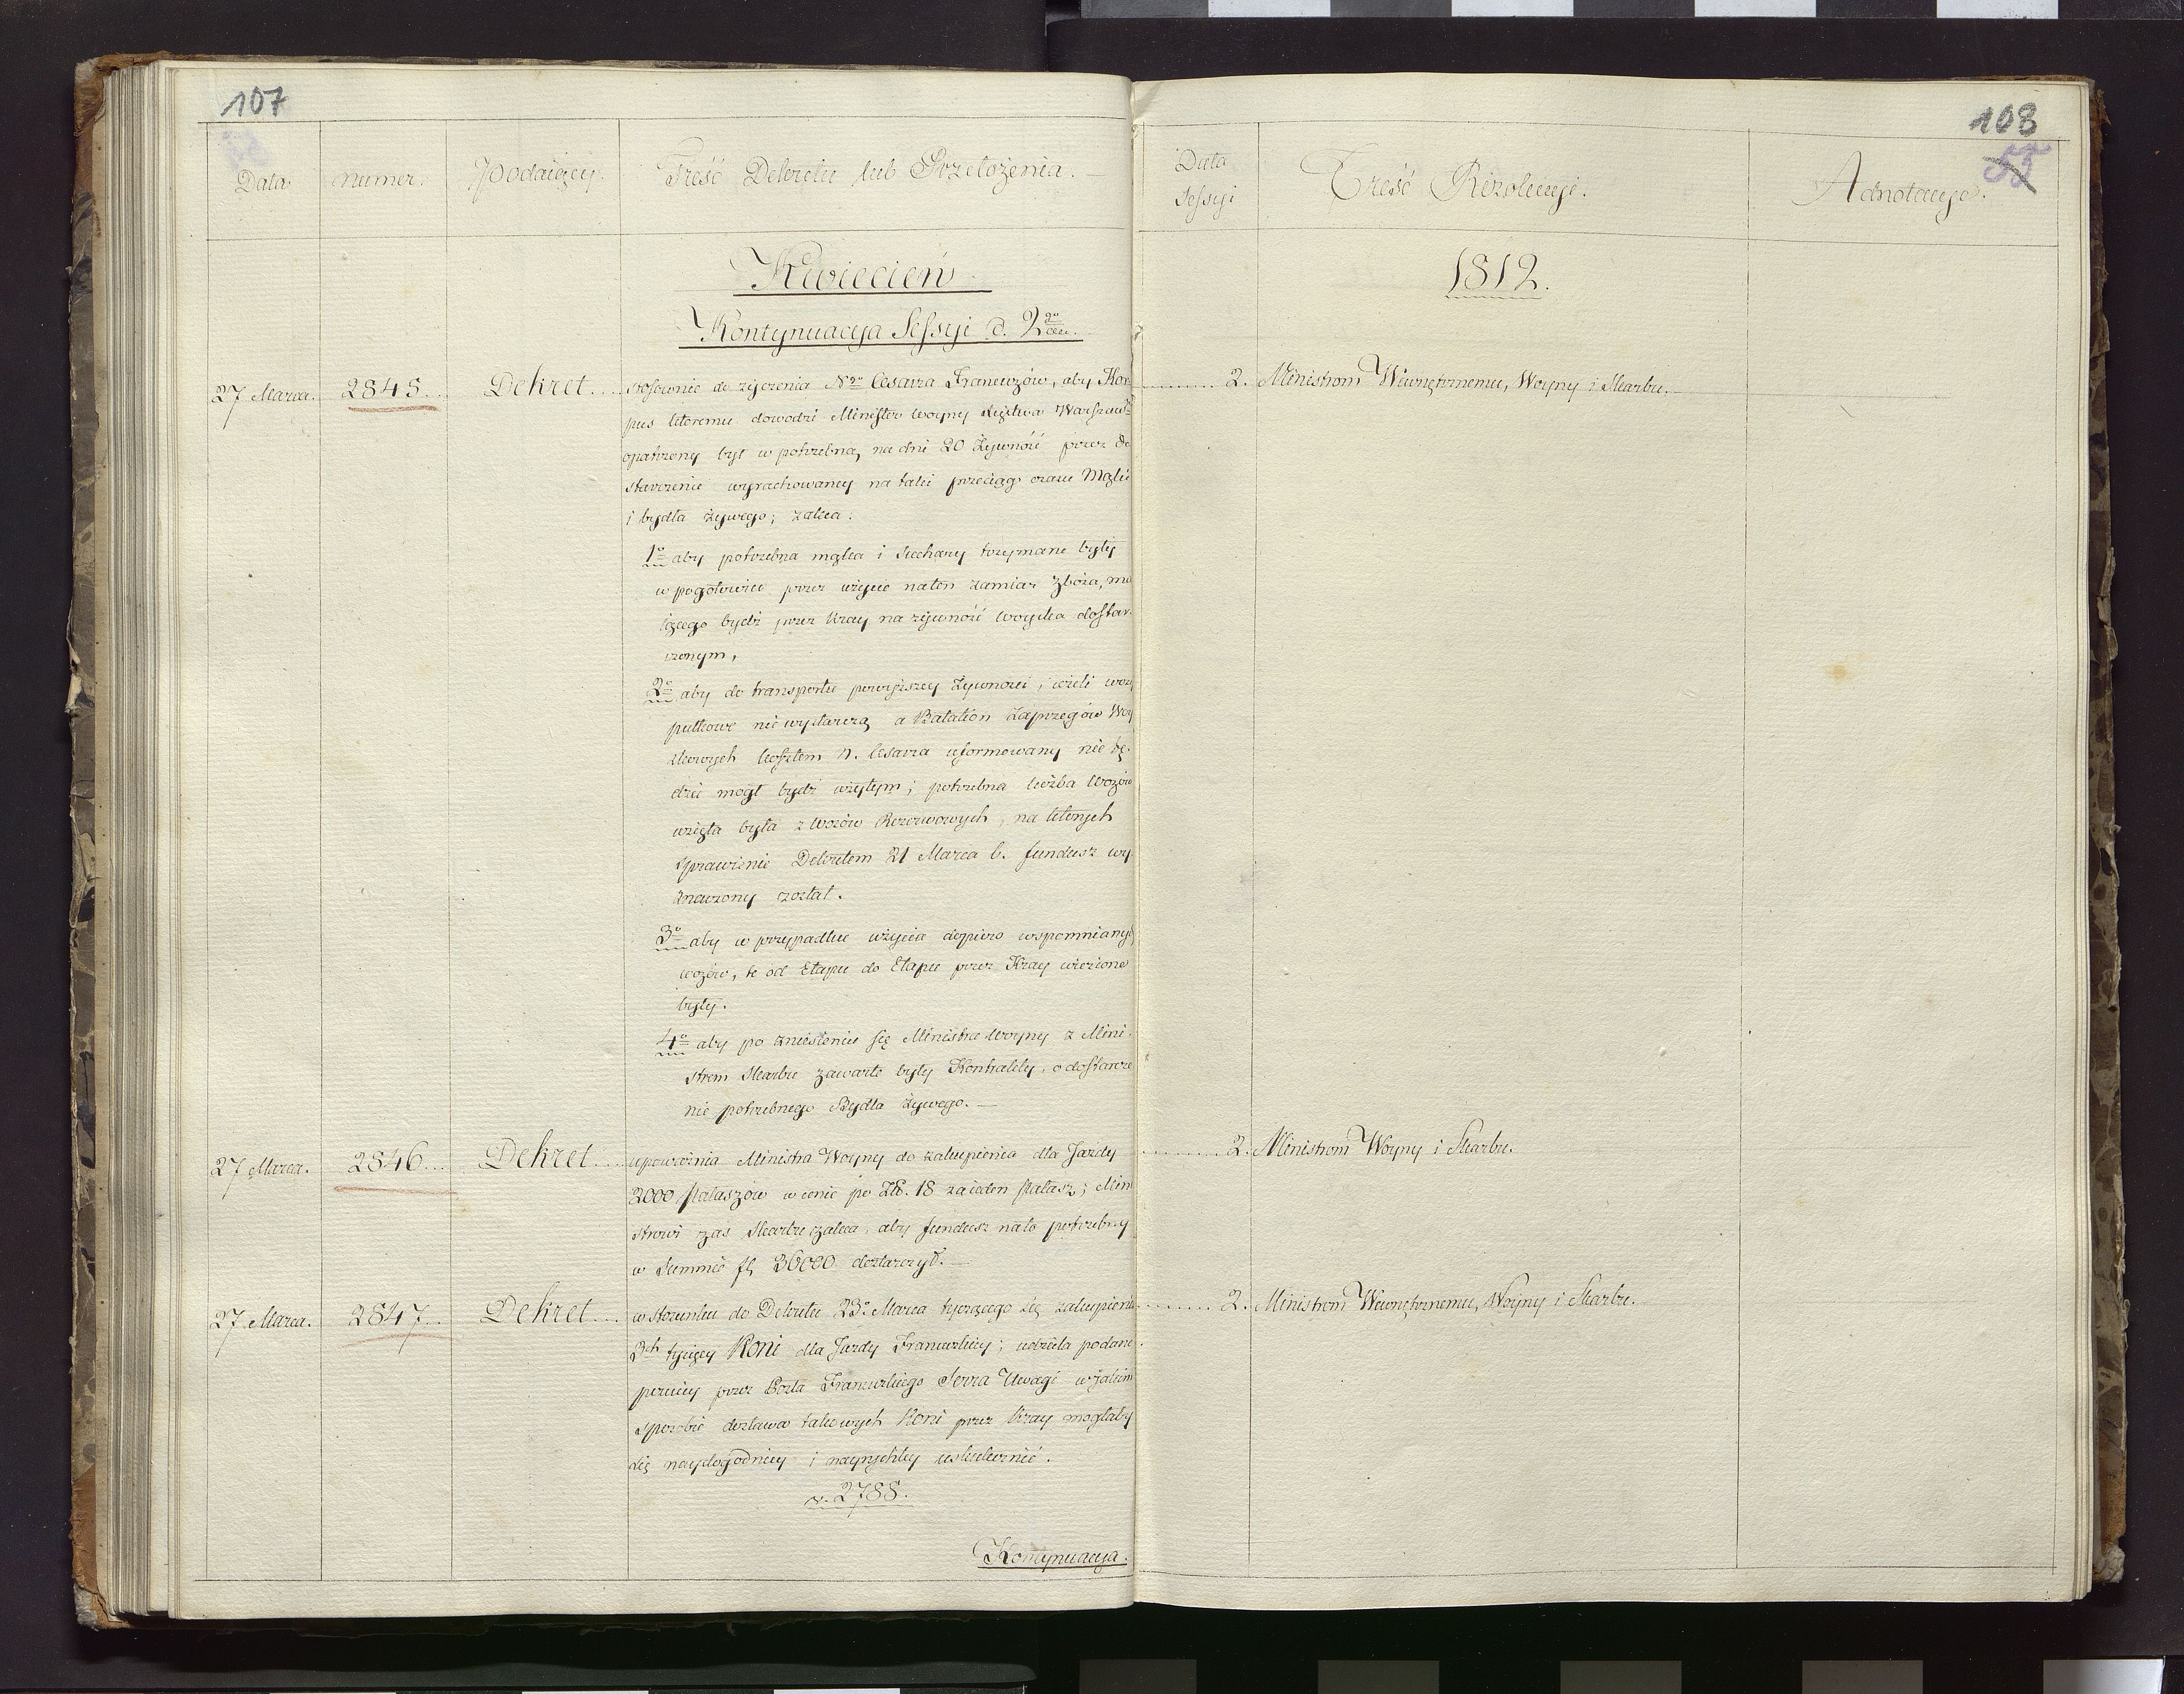 107
Data. numer. Podaiący. Treść Dekretu lub Przełożenia.
Kwiecień
Kontynuacya Sessyi d. 2go
27 Marca. 2845... Dekret...
stosownie do życzenia No Cesarza Francuzów, aby Kor-
pus któremu dowodzi Minister woyny Xięstwa Warszaw
opatrzony był w potrzebną, na dni 20 żywność przez do
starczenie wyrachowaney na taki przeciąg czasu Mąki
i bydła żywego; zaleca:
1o aby potrzebna mąka i Suchary trzymane były
w pogotowiu przez użycie naten zamiar Zboża, ma
iącego bydź przez kray na żywność woyska dostar-
czonym,
2o aby do transportu powyższey Żywności, ieżeli wozy
pułkowe nie wystarczą a Batalion Zaprzęgów Woy
skowych kosztem N. Cesarza uformowany nie bę-
dzie mógł bydź użytym; potrzebna liczba wozów
wzięta była z wozów Rezerwowych, na których
sprawienie Dekretem 21 Marca b. fundusz wy
znaczony został.
3o aby w przypadku użycia dopiero wspomnianych
wozów, te od Etapu do Etapu przez Kray wiezione
były.
4o aby po zniesieniu się Ministra Woyny z Mini-
strem Skarbu zawarte były Kontrakty o dostarcze
nie potrzebnego Bydła żywego.—
27 Marca. 2846... Dekret...
upoważnia Ministra Woyny do zakupienia dla Jazdy
2000 Pałaszów w cenie po Zł. 18 za ieden Pałasz; Mini
strowi zas Skarbu zaleca, aby fundusz nato potrzebny
w Summie fl 36000 dostarczył.—
27 Marca. 2847... Dekret...
w stosunku do Dekretu 23o Marca tyczącego się zakupienia
3ch tysięcy Koni dla Jazdy Francuzkiey; udziela podane
przez Posła Francuzkiego Serra Uwagi w jakim
sposobie dostawa takowych Koni przez Kray mogłaby
się naydogodniey i nayrychley uskutecznić.
v. 2788.
Kontynuacya.
108
55
Data Sessyi Treść Rezolucyi. Adnotacye.
1812.
........ 2. Ministrom Wewnętrznemu, Woyny i Skarbu.
........ 2. Ministrom Woyny i Skarbu.
........ 2. Ministrom Wewnętrznemu, Woyny i Skarbu.